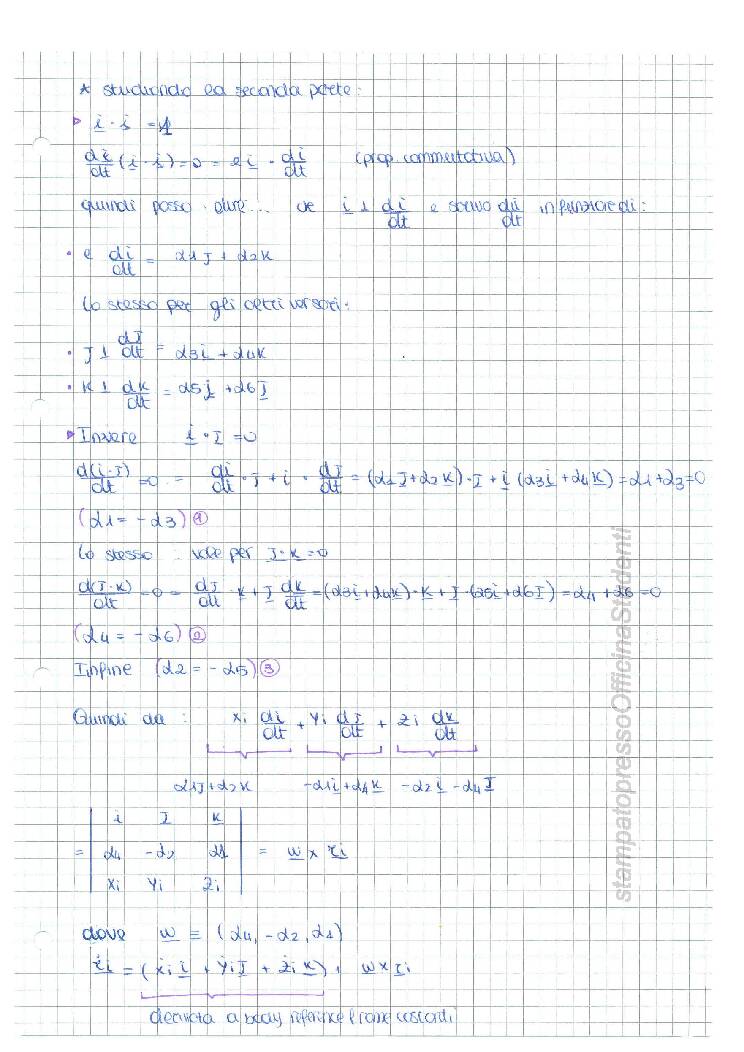 * studiando la seconda parte:
▸ i · i = 1
di/dt (i · i) = 0 = 2 i · di/dt (prop commutativa)
quindi posso dire... ce i ⊥ di/dt e scrivo di/dt in funzione di:
• e di/dt = α1 J + α2 K
Lo stesso per gli altri versori:
• J ⊥ dJ/dt = α3 i + α4 K
• K ⊥ dK/dt = α5 i + α6 J
▸ Invere i · J = 0
d(i·J)/dt = 0 = di/dt · J + i · dJ/dt = (α1 J + α2 K) · J + i (α3 i + α4 K) = α1 + α3 = 0
(α1 = - α3) ①
Lo stesso vale per J · K = 0
d(J·K)/dt = 0 = dJ/dt · K + J dK/dt = (α3 i + α4 K) · K + J · (α5 i + α6 J) = α4 + α6 = 0
(α4 = - α6) ②
Infine (α2 = - α5) ③
Quindi da : xi di/dt + yi dJ/dt + zi dK/dt
α1 J + α2 K -α1 i + α4 K -α2 i - α4 J
| i J K |
= | α4 -α2 α1 | = w x ri
| xi yi zi |
dove w ≡ (α4, -α2, α1)
ṙi = (ẋi i + ẏi J + żi K) + w x ri
derivata a body reference frame costanti
stampatopressoOfficinaStudenti